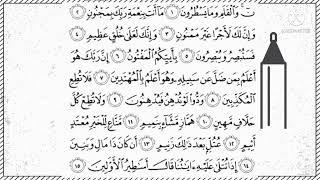 نٓ وَٱلْقَلَمِ وَمَا يَسْطُرُونَ ١ مَآ أَنتَ بِنِعْمَةِ رَبِّكَ بِمَجْنُونٍ ٢
وَإِنَّ لَكَ لَأَجْرًا غَيْرَ مَمْنُونٍ ٣ وَإِنَّكَ لَعَلَىٰ خُلُقٍ عَظِيمٍ ٤
فَسَتُبْصِرُ وَيُبْصِرُونَ ٥ بِأَييِّكُمُ ٱلْمَفْتُونُ ٦ إِنَّ رَبَّكَ هُوَ
أَعْلَمُ بِمَن ضَلَّ عَن سَبِيلِهِۦ وَهُوَ أَعْلَمُ بِٱلْمُهْتَدِينَ ٧ فَلَا تُطِعِ
ٱلْمُكَذِّبِينَ ٨ وَدُّوا۟ لَوْ تُدْهِنُ فَيُدْهِنُونَ ٩ وَلَا تُطِعْ كُلَّ
حَلَّافٍ مَّهِينٍ ١٠ هَمَّازٍ مَّشَّآءٍ بِنَمِيمٍ ١١ مَّنَّاعٍ لِّلْخَيْرِ مُعْتَدٍ
أَثِيمٍ ١٢ عُتُلٍّ بَعْدَ ذَٰلِكَ زَنِيمٍ ١٣ أَن كَانَ ذَا مَالٍ وَبَنِينَ
١٤ إِذَا تُتْلَىٰ عَلَيْهِ ءَايَٰتُنَا قَالَ أَسَٰطِيرُ ٱلْأَوَّلِينَ ١٥